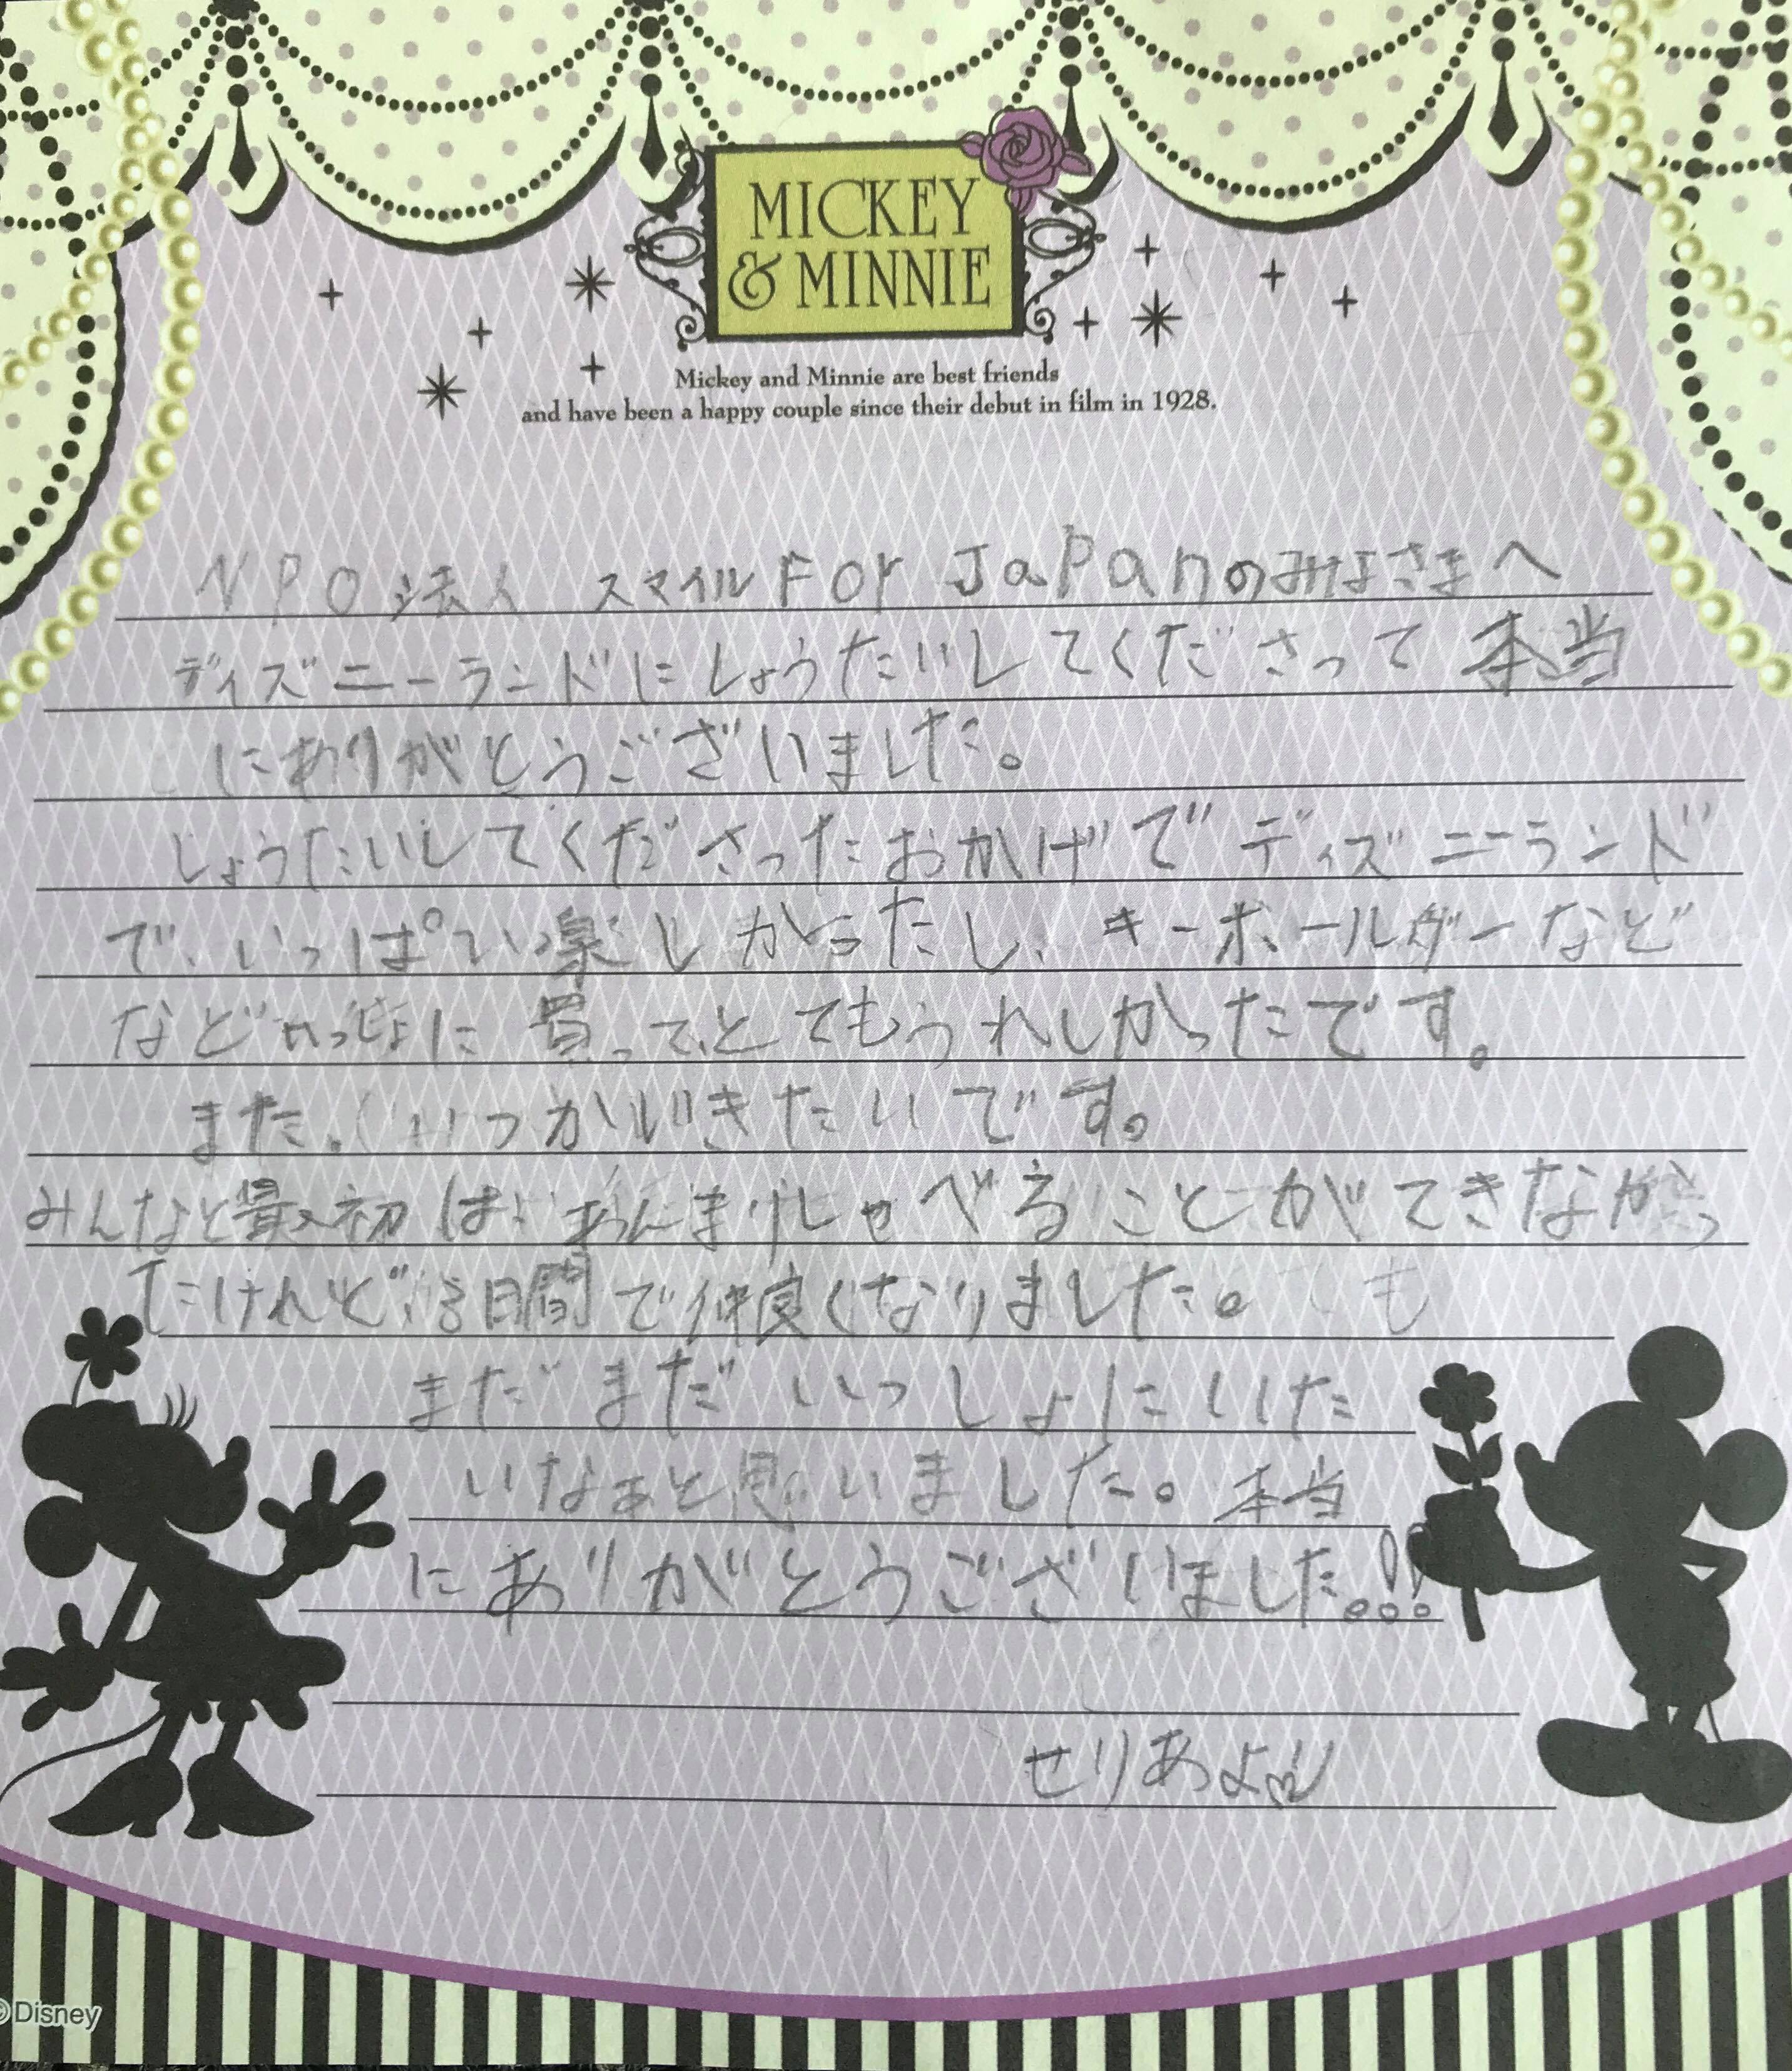 MICKEY
& MINNIE
Mickey and Minnie are best friends
and have been a happy couple since their debut in film in 1928.
NPO法人 スマイル For JaPanのみなさまへ
ディズニーランドにしょうたいしてくださって本当
にありがとうございました。
しょうたいしてくださったおかげでディズニーランド
で、いっぱい楽しかったし、キーホールダーなど
などいっしょに買って、とてもうれしかったです。
また、いつかいきたいです。
みんなと最初は、あんまりしゃべることができなかっ
たけれど 日間で仲良くなりました。 も
まだまだいっしょにいた
いなぁと思いました。本当
にありがとうございました。!!
せりあより
©Disney